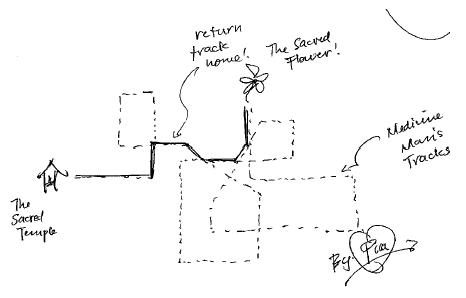 return
track
home!
The Sacred
Flower!
Medicine
Man's
Tracks
The
Sacred
Temple
By: